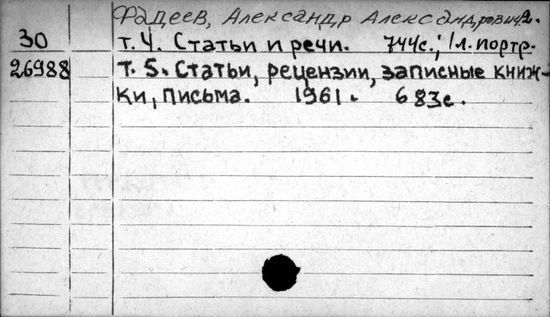 Фадеев, Александр Александрович 2.
30 т. 4. Статьи и речи. 744с.; 1л. портр.
26988 т. 5. Статьи, рецензии, записные книж-
ки, письма. 1961. 683с.